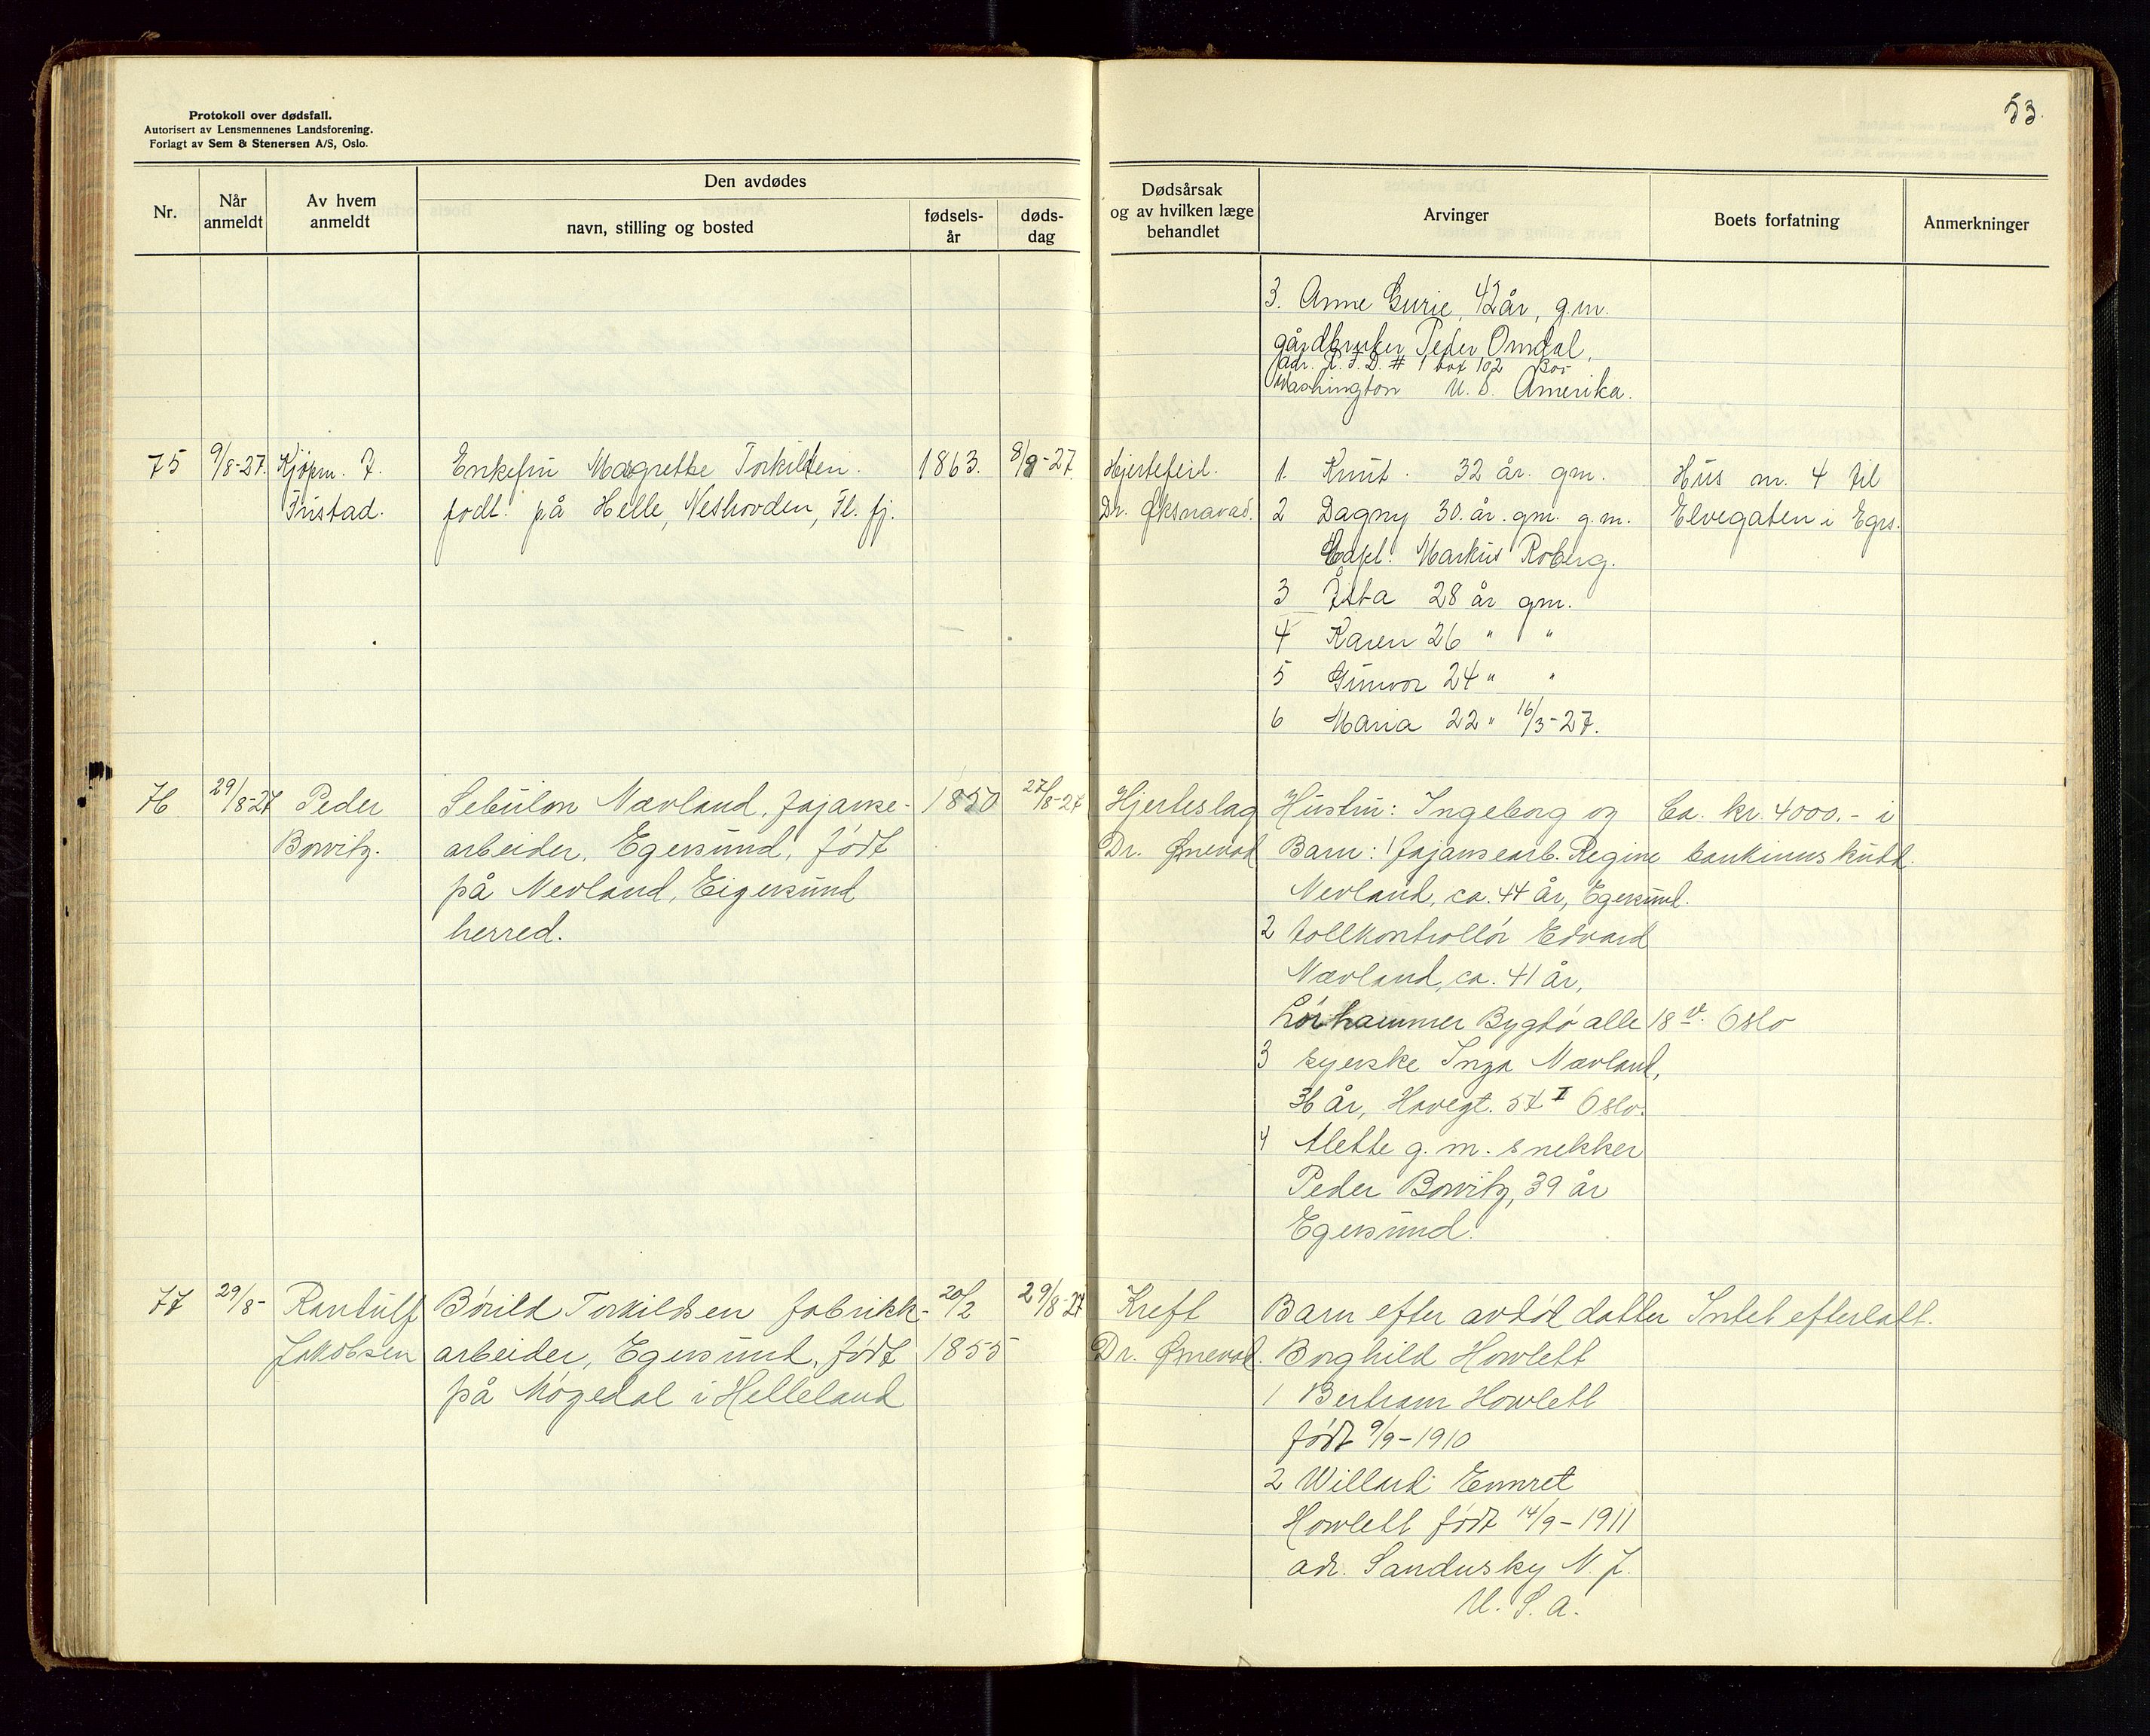 53.
Protokoll over dødsfall.
Autorisert av Lensmennenes Landsforening.
Forlagt av Sem & Stenersen A/S, Oslo.
Nr.
Når anmeldt
Av hvem anmeldt
Den avdødes
navn, stilling og bosted
fødsels-år
døds-dag
Dødsårsak og av hvilken læge behandlet
Arvinger
Boets forfatning
Anmerkninger
3. Anne Gurie, 42 år, g.m.
gårdbruker Peder Omdal,
Adr. R. F. D. # 1 box 102
Washington U. S. Amerika.
75
9/8-27.
Kjøpm. J.
Tristad.
Enkefru Magrethe Torkildsen.
født på Helle, Neshovden, Fl. fj.
1863.
8/8-27
Hjertefeil.
Dr. Øksnavad.
1. Knut. 32 år. gm.
2 Dagny 30. år. gm. g.m.
Capt. Markus Roberg.
3 Åsta 28 år gm.
4 Karen 26 " "
5 Gunvor 24 " "
6 Maria 22 " 16/3-27.
Hus nr. 4 til
Elvegaten i Egrs.
76
29/8-27
Peder
Bowitz.
Sebulon Nævland, fajanse-
arbeider, Egersund, født
på Nevland, Eigersund
herred.
1850
27/8-27
Hjerteslag
Dr. Ørnevad
Hustru: Ingeborg og
Barn: 1 fajansearb. Regine
Nevland, ca. 44 år, Egersund.
2 tollkontrollør Edvard
Nævland, ca. 41 år,
Bygdø alle 18 Oslo
3 syerske Inga Nævland,
36 år, Havegt. 54 I Oslo.
4 Alette g. m. snekker
Peder Bowitz, 39 år
Egersund.
Ca. kr. 4000.- i
bankinnskudd.
77
29/8-
Randulf
Jakobsen
Bórild Torkildsen fabrikk-
arbeider, Egersund, født
på Møgedal i Helleland
20/2
1855
29/8-27
Kreft
Dr. Ørnevad.
Barn efter avdød datter
Borghild Howlett
1 Bertram Howlett
født 9/9-1910
2 Willard Emret
Howlett født 14/9-1911
adr. Sandusky N. J.
U. S. A.
Intet efterlatt.